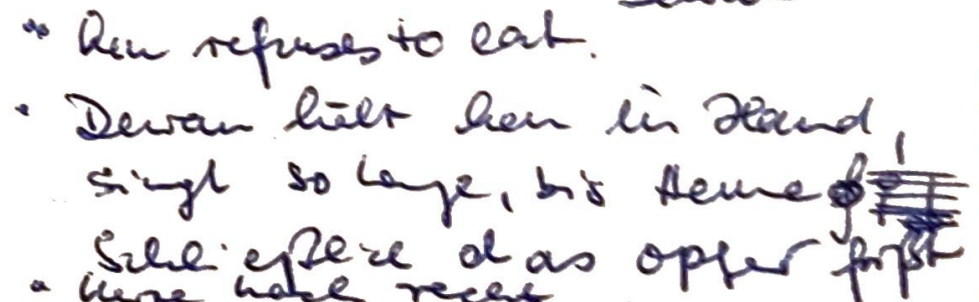 Hen refuses to eat.
Dewan hält hen in Hand,
singt so lange, bis Henne
schließlich das opfer frißt